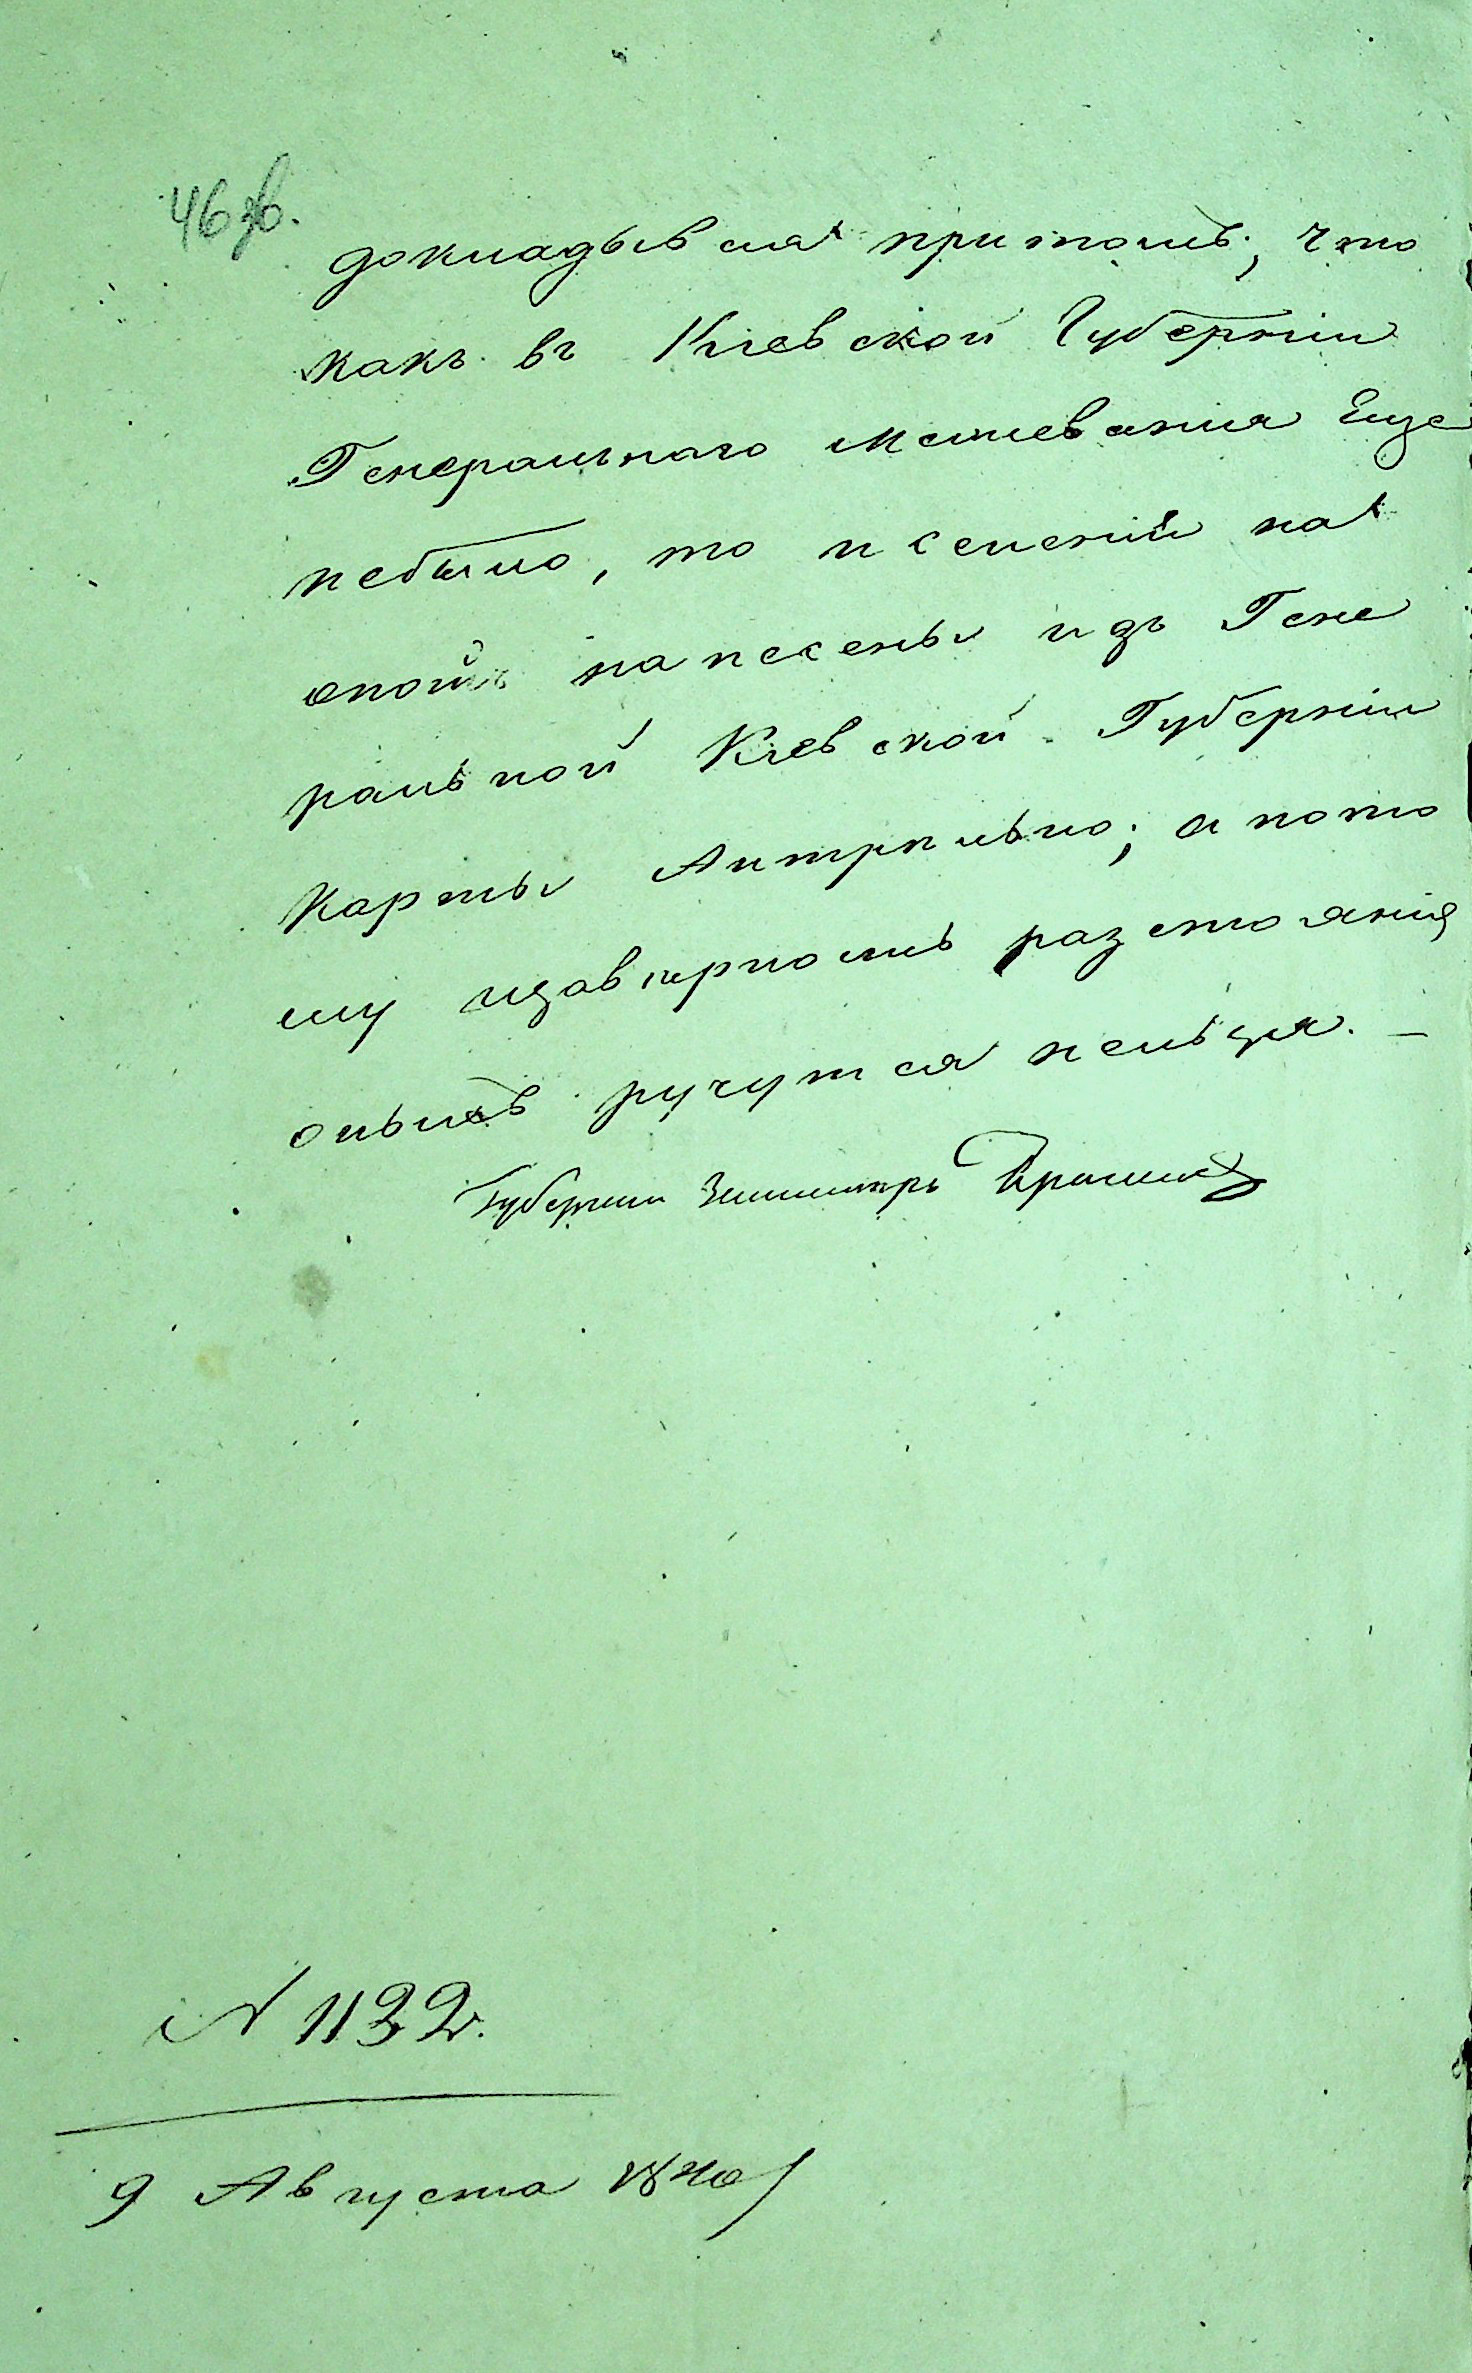 46 зв.
докладывая притомъ; что
какъ въ Кіевской Губерніи
Генеральнаго межеванія Еще
небыло, то и селеніи на
оной нанесены изъ Гене
ральной Кіевской Губерніи
карты; а пото
му изавѣрность разстоянія
оныхъ ручутся нельзя. —
Губернскій Землемѣръ
N 1132.
9 Августа 1840